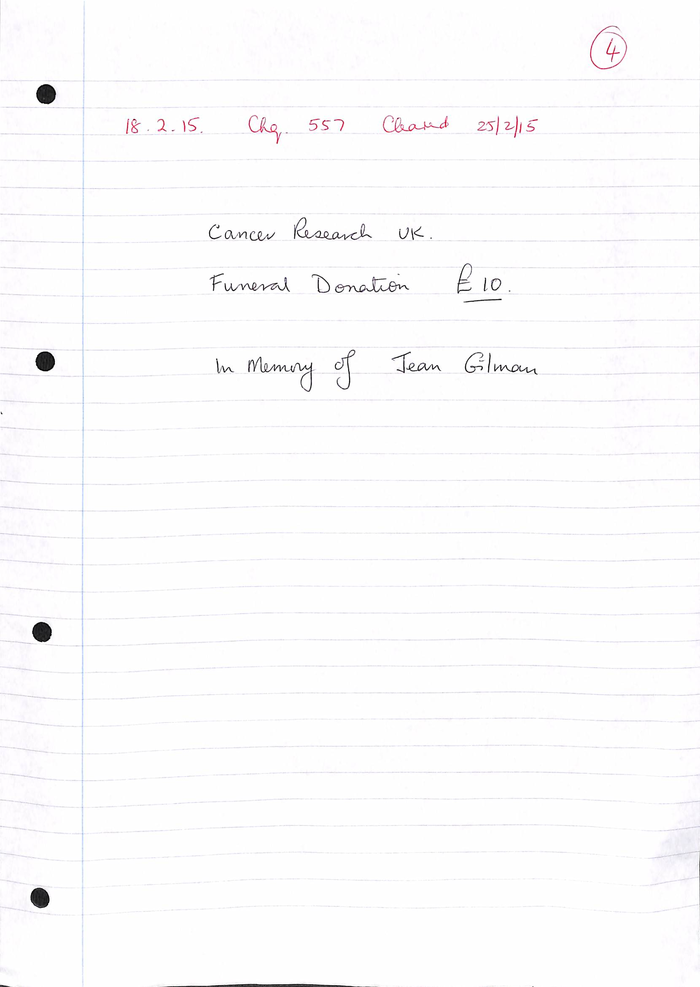 4
18.2.15. Chq. 557 Cleared 25/2/15
Cancer Research UK.
Funeral Donation £10.
In Memory of Jean Gilman